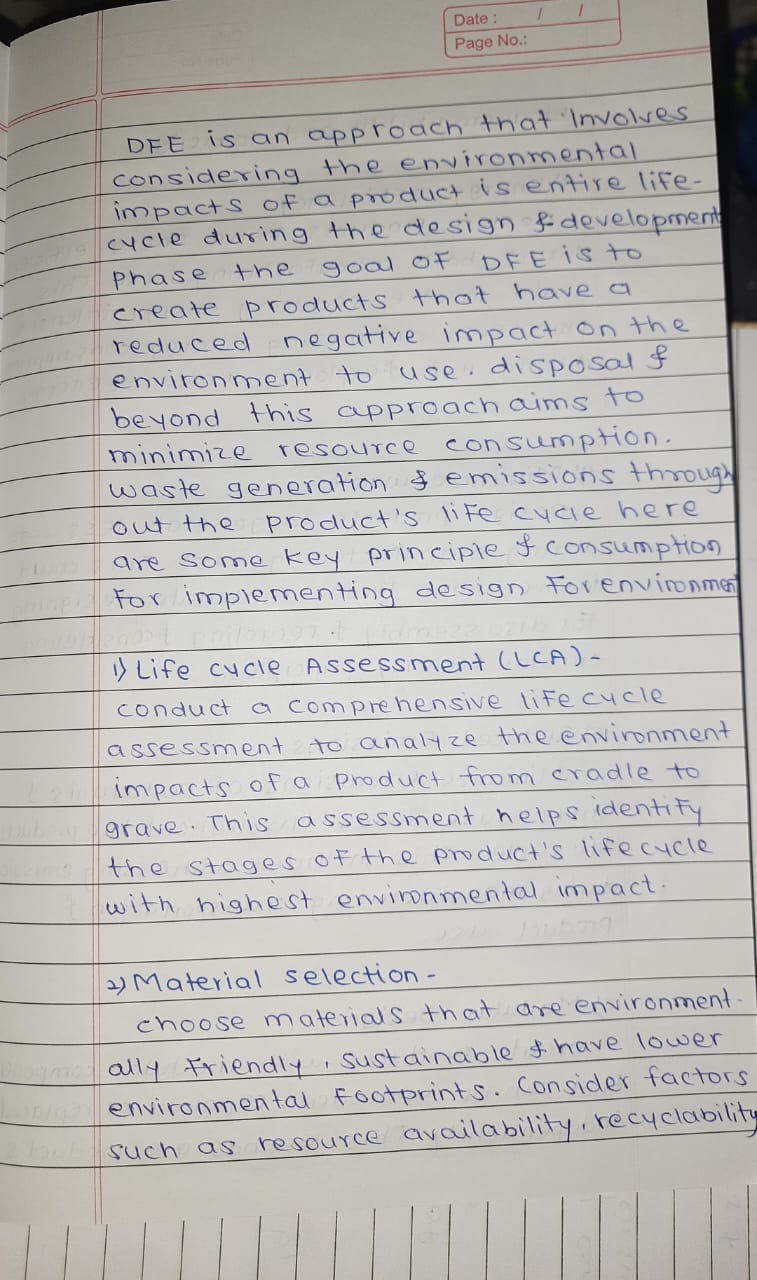 Date : / /
Page No.:
DFE is an approach that Involves
considering the environmental
impacts of a product is entire life-
cycle during the design & development
phase the goal of DFE is to
create products that have a
reduced negative impact on the
environment to use. disposal &
beyond this approach aims to
minimize resource consumption.
waste generation & emissions through
out the product's life cycle here
are some key principle & consumption
for implementing design for environment
1) Life cycle Assessment (LCA) -
conduct a comprehensive life cycle
assessment to analyze the environment
impacts of a product from cradle to
grave. This assessment helps identify
the stages of the product's life cycle
with highest environmental impact.
2) Material selection -
choose materials that are environment-
ally friendly, sustainable & have lower
environmental footprints. Consider factors
such as resource availability, recyclability